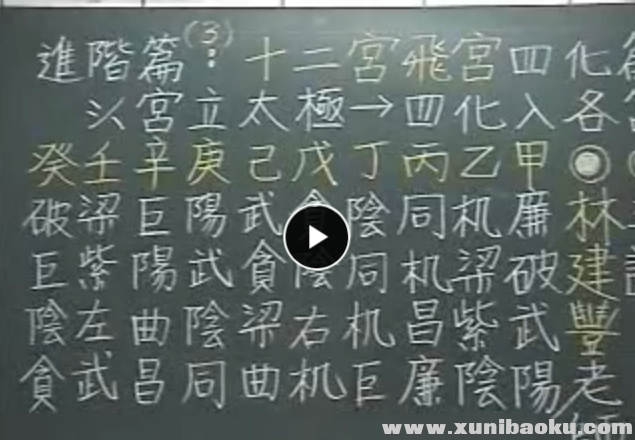 進階篇(3):十二宮飛宮四化
以宮立太極→四化入各
癸壬辛庚己戊丁丙乙甲
破梁巨陽武貪陰同机廉
巨紫陽武貪陰同机梁破
陰左曲陰梁右机昌紫武
貪武昌同曲机巨廉陰陽
林建豐老師
www.xunibaoku.com